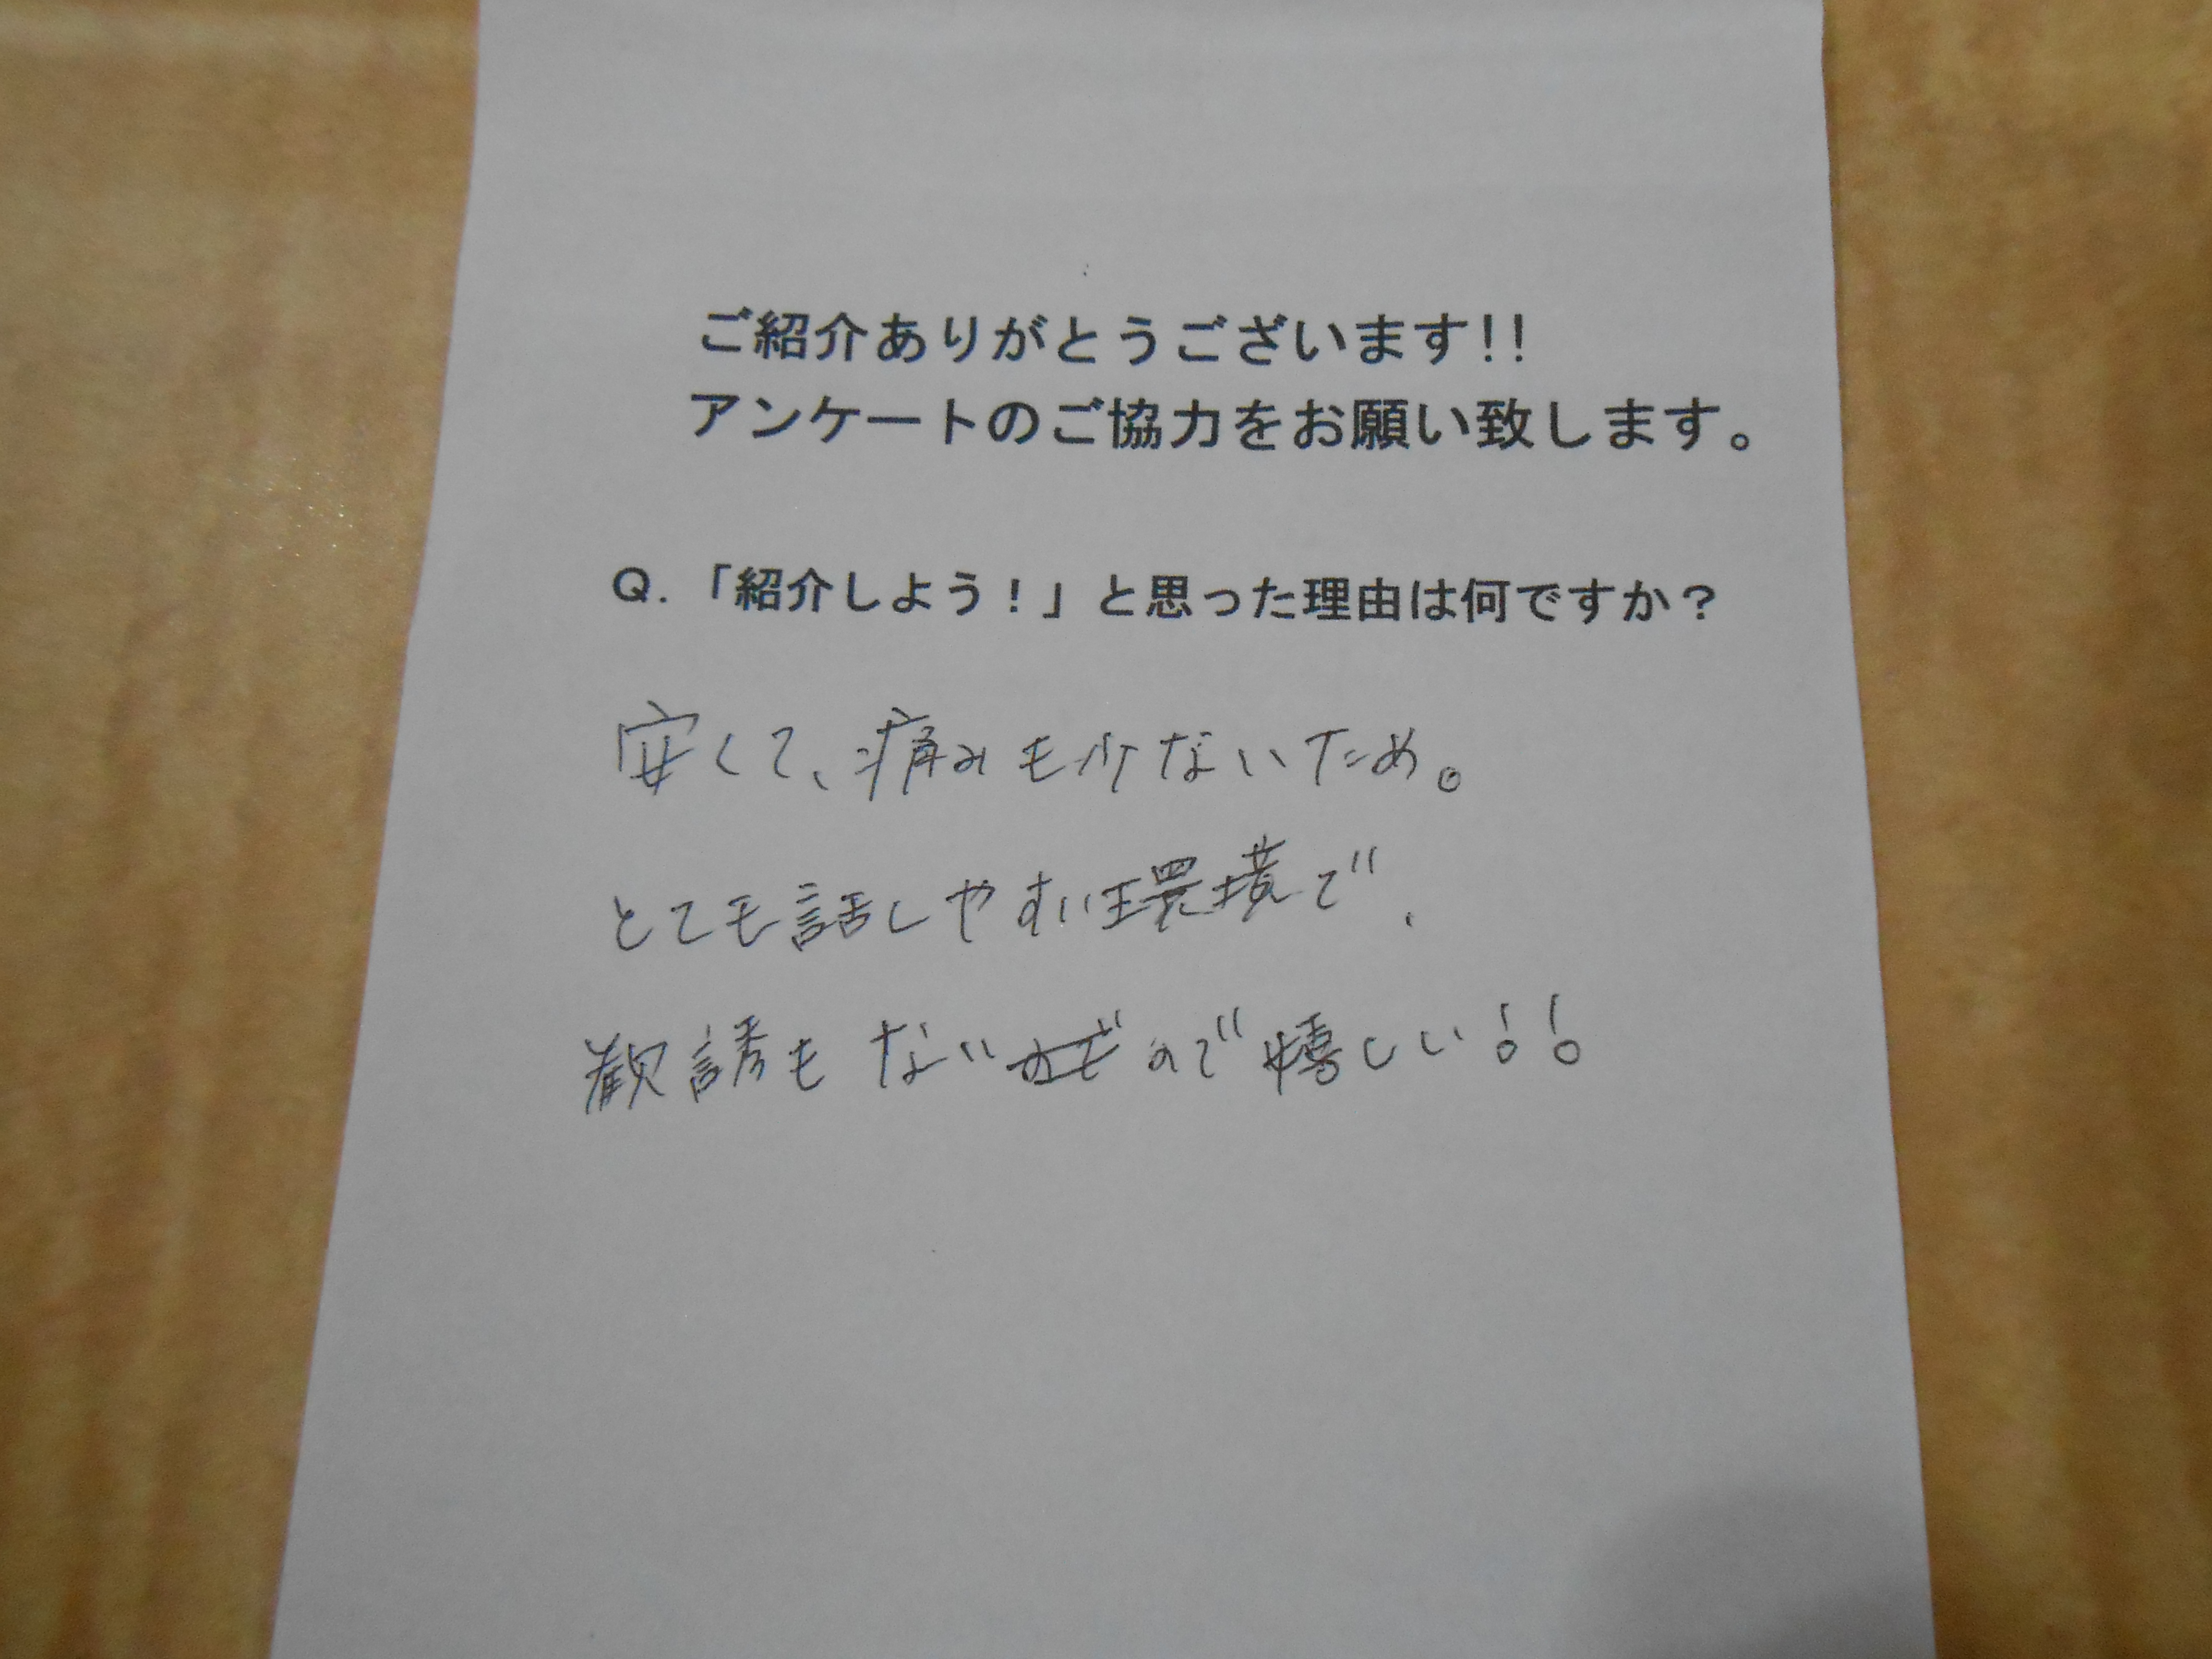 ご紹介ありがとうございます!!
アンケートのご協力をお願い致します。
Q.「紹介しよう！」と思った理由は何ですか？
安くて、痛みも少ないため。
とても話しやすい環境で、
歓誘もないので嬉しい!!